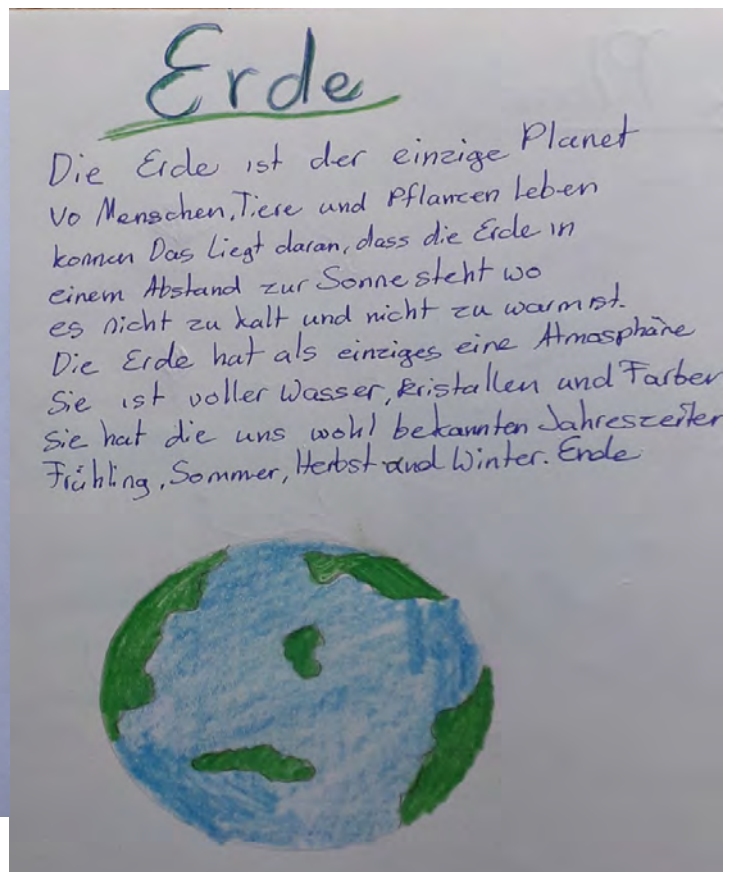 Erde
Die Erde ist der einzige Planet
Vo Menschen, Tiere und Pflanzen Leben
konnen Das Liegt daran, dass die Erde in
einem Abstand zur Sonne steht wo
es nicht zu kalt und nicht zu warm ist.
Die Erde hat als einziges eine Atmosphäre
Sie ist voller Wasser, kristallen und Farben
Sie hat die uns wohl bekannten Jahreszeiten
Frühling, Sommer, Herbst und Winter. Ende